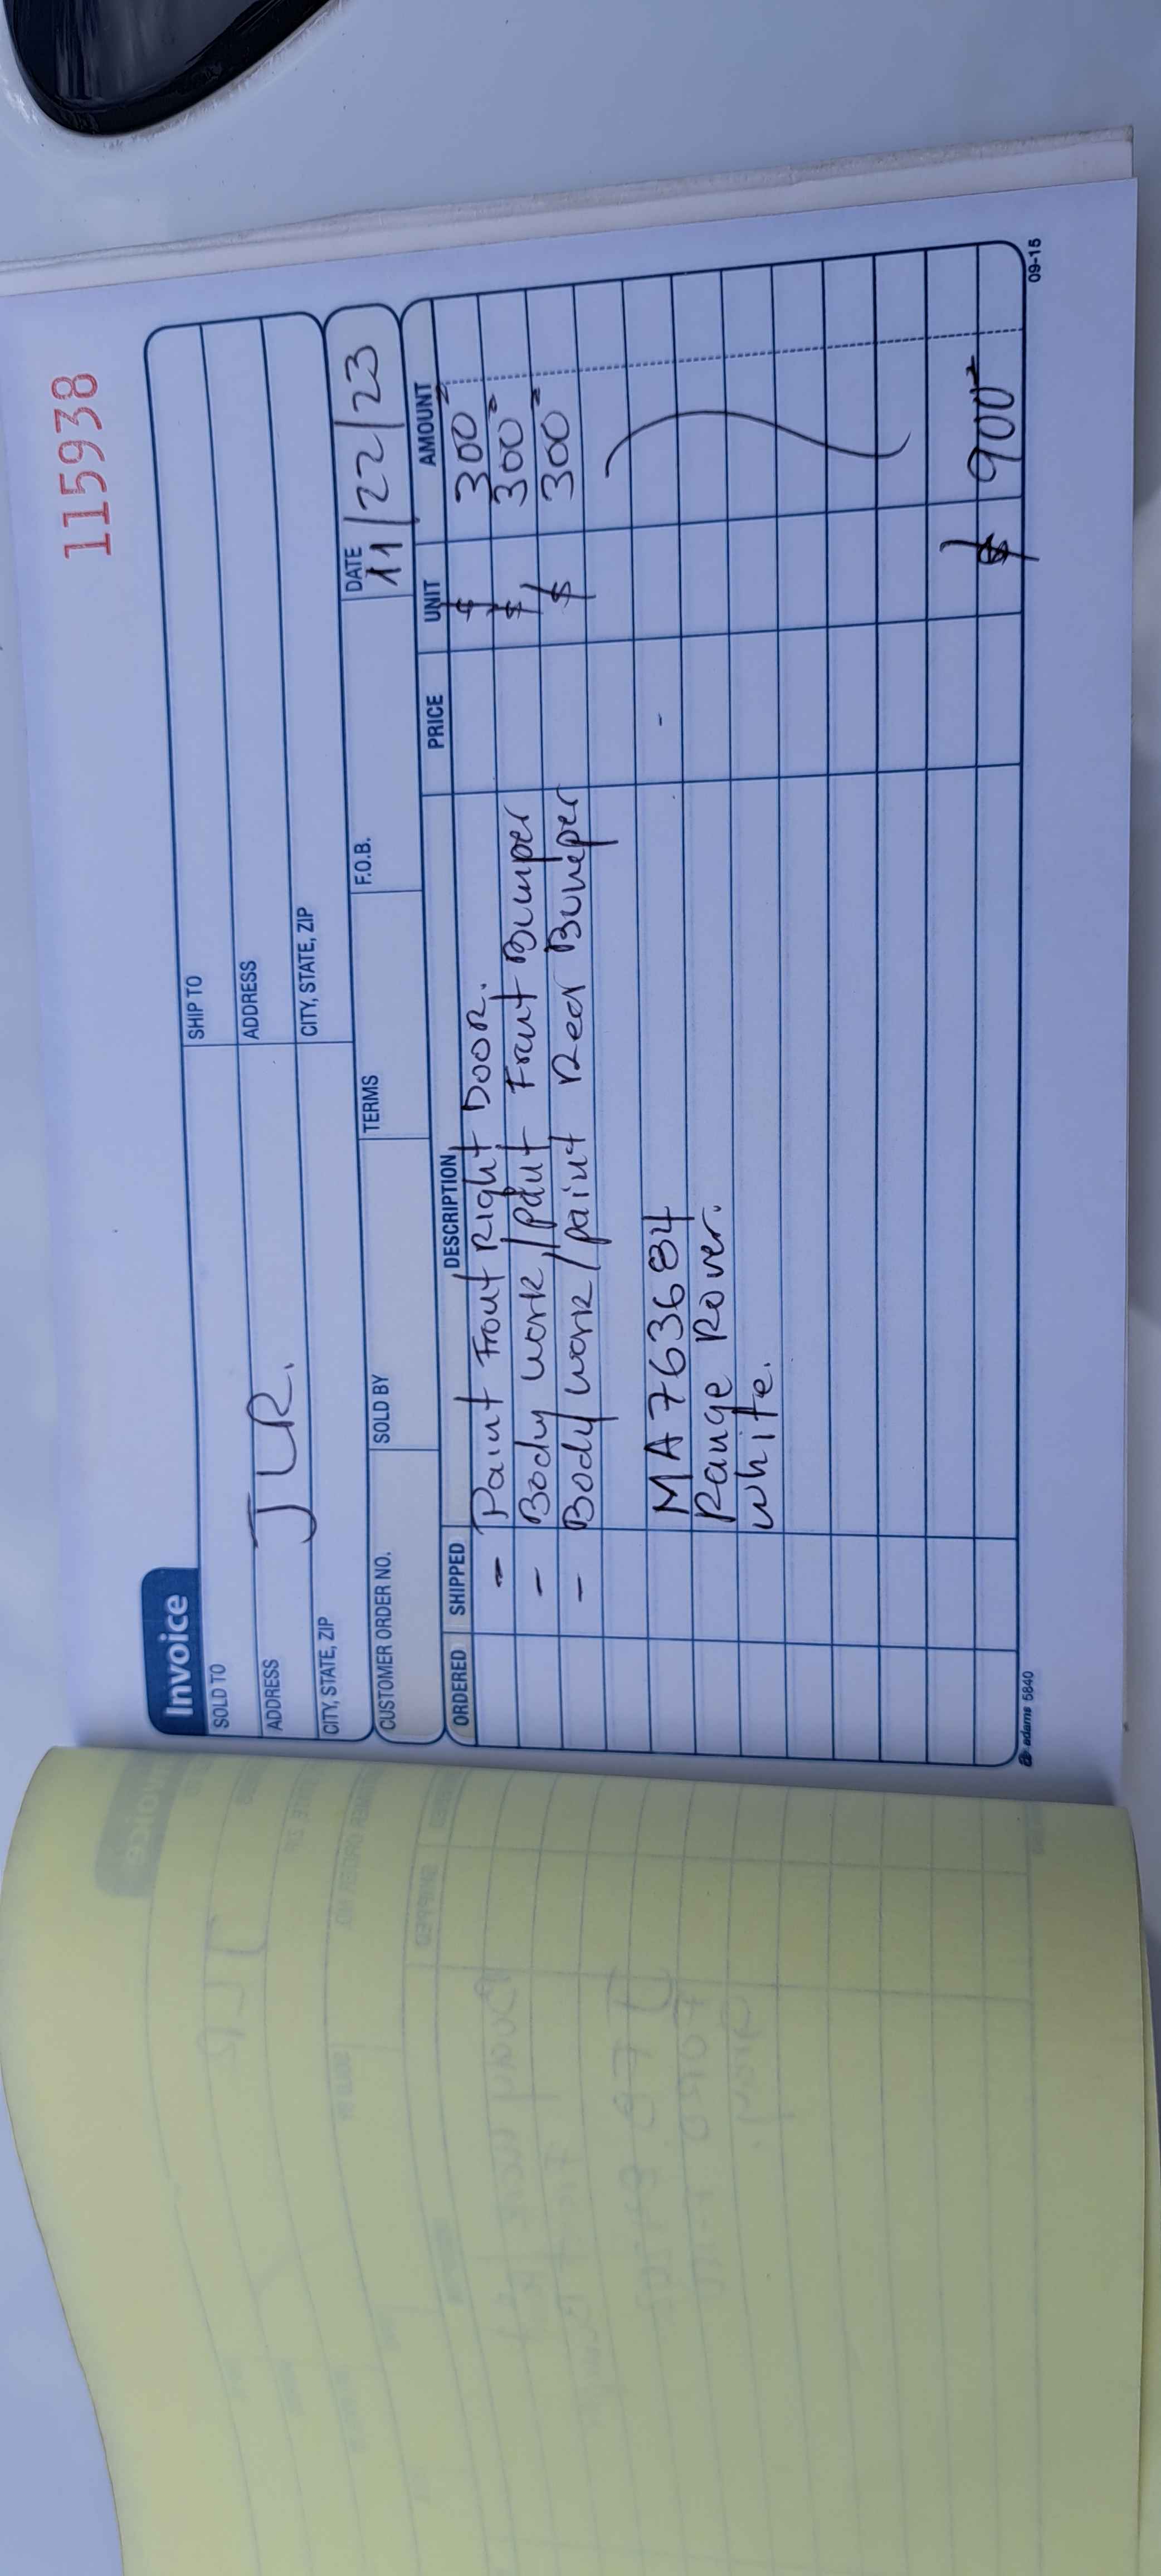 115938
Invoice
SOLD TO
SHIP TO
ADDRESS
ADDRESS
JLR.
CITY, STATE, ZIP
CITY, STATE, ZIP
CUSTOMER ORDER NO.
SOLD BY
TERMS
F.O.B.
DATE
11/22/23
ORDERED SHIPPED DESCRIPTION PRICE UNIT AMOUNT
- Paint Front Right DOOR. $ 300
- Body work/paint Front Bumper $ 300
- Body work/paint Rear Bumper $ 300
MA763684
Range Rover.
white.
$ 900
adams 5840
09-15